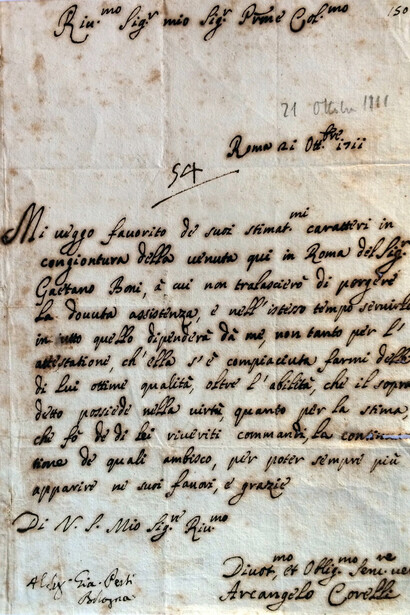 Riu.mo Sig.r mio Sig.r Prone Col.mo
150
21 Ottobre 1711
Roma 21 Ott.bre 1711
54
Mi veggo favorito de suoi stimat.mi caratteri in
congiontura della venuta quì in Roma del Sig.r
Gaetano Boni, à cui non tralascierò di porgere
la dovuta assistenza, e nell'istesso tempo servirlo
in tutto quello dipenderà dà me, non tanto per l'
attestatione, ch'ella s'è compiaciuta farmi delle
di lui ottime qualità, oltre l'abilità, che il sopra
detto possiede nella virtù quanto per la stima,
che fò de di lei riveriti commandi, la continua
tione de quali ambisco, per poter sempre più
apparire ne suoi favori, e grazie
Di V. S. Mio Sig.re Riu.mo
Divot.mo et Oblig.mo Serv.re
Arcangelo Corelli
Perti
Bologna